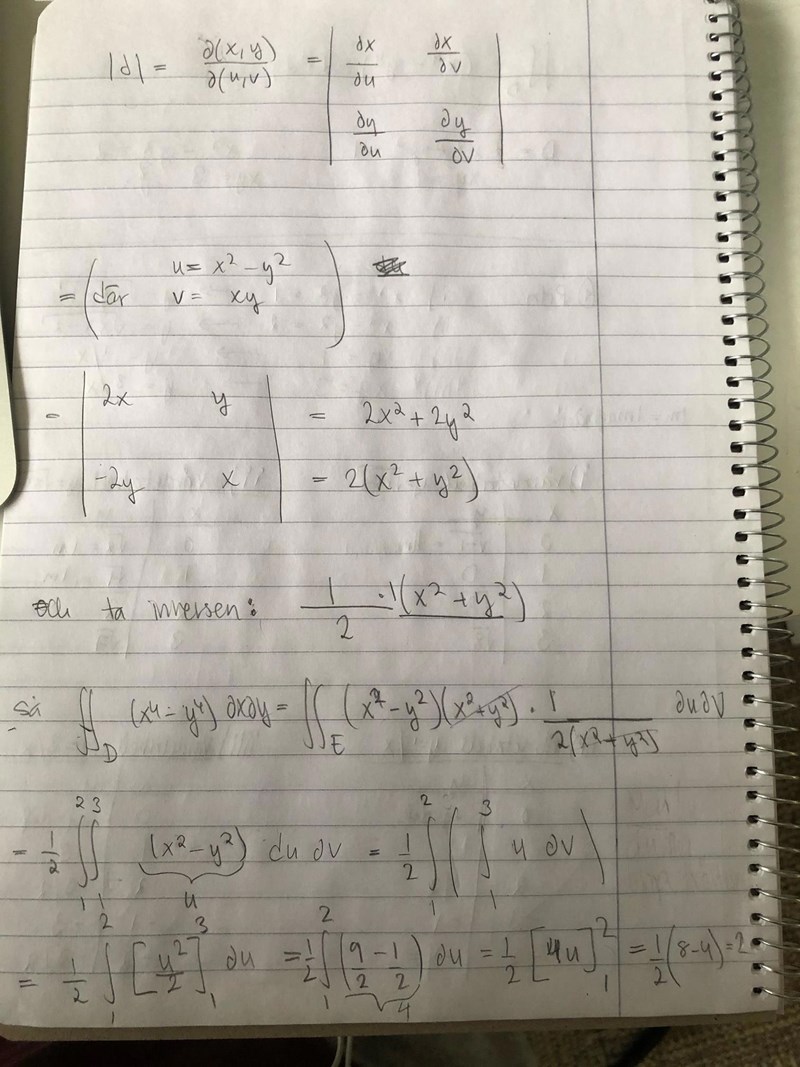 |d| = ∂(x,y)/∂(u,v) = | ∂x/∂u ∂x/∂v |
| ∂y/∂u ∂y/∂v |
= ( där u = x² - y²
v = xy )
= | 2x y | = 2x² + 2y²
| -2y x | = 2(x² + y²)
och ta inversen: 1/2 · 1/(x² + y²)
Så ∬_D (x⁴ - y⁴) ∂x∂y = ∬_E (x² - y²)(x² + y²) · 1/(2(x² + y²)) ∂u∂v
= 1/2 ∫₁² ∫₁³ (x² - y²) du ∂v = 1/2 ∫₁² ( ∫₁³ u ∂v )
u
= 1/2 ∫₁² [u²/2]₁³ du = 1/2 ∫₁² (9/2 - 1/2) du = 1/2 [4u]₁² = 1/2 (8-4) = 2
4